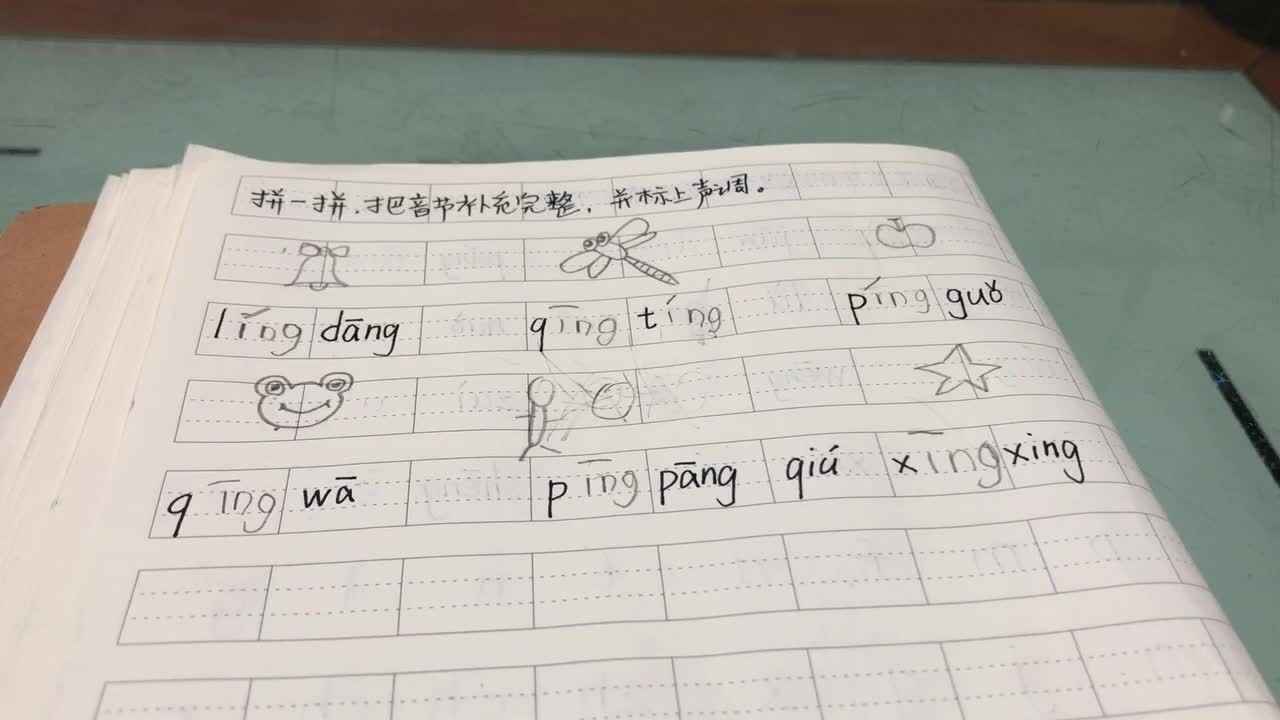 拼一拼,把音节补充完整,并标上声调。
lǐng dāng qīng tíng píng guǒ
qīng wā pīng pāng qiú xīng xing